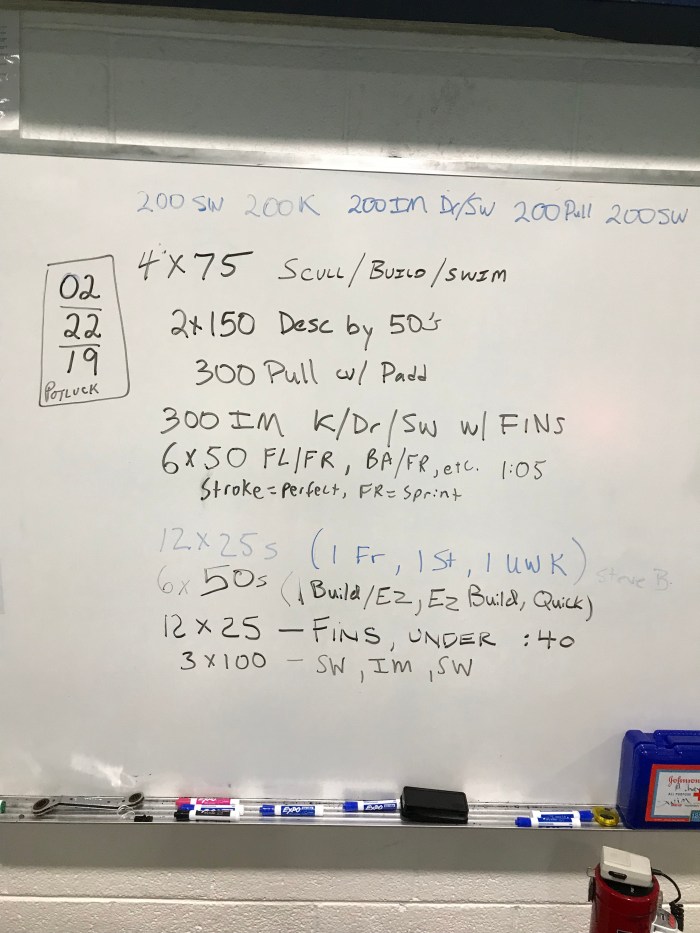 200 SW 200K 200IM Dr/SW 200 Pull 200SW
4x75 SCULL/BUILD/SWIM
02
22
19
POTLUCK
2x150 Desc by 50's
300 Pull w/ Padd
300 IM K/Dr/SW w/ FINS
6x50 FL/FR, BA/FR, etc. 1:05
Stroke = perfect, FR = Sprint
12x25s (1 Fr, 1 St, 1 UWK)
Steve B.
6x 50s (1 Build/EZ, EZ Build, Quick)
12x25 — FINS, UNDER :40
3x100 — SW, IM, SW
EXPO
EXPO
EXPO
Johnson